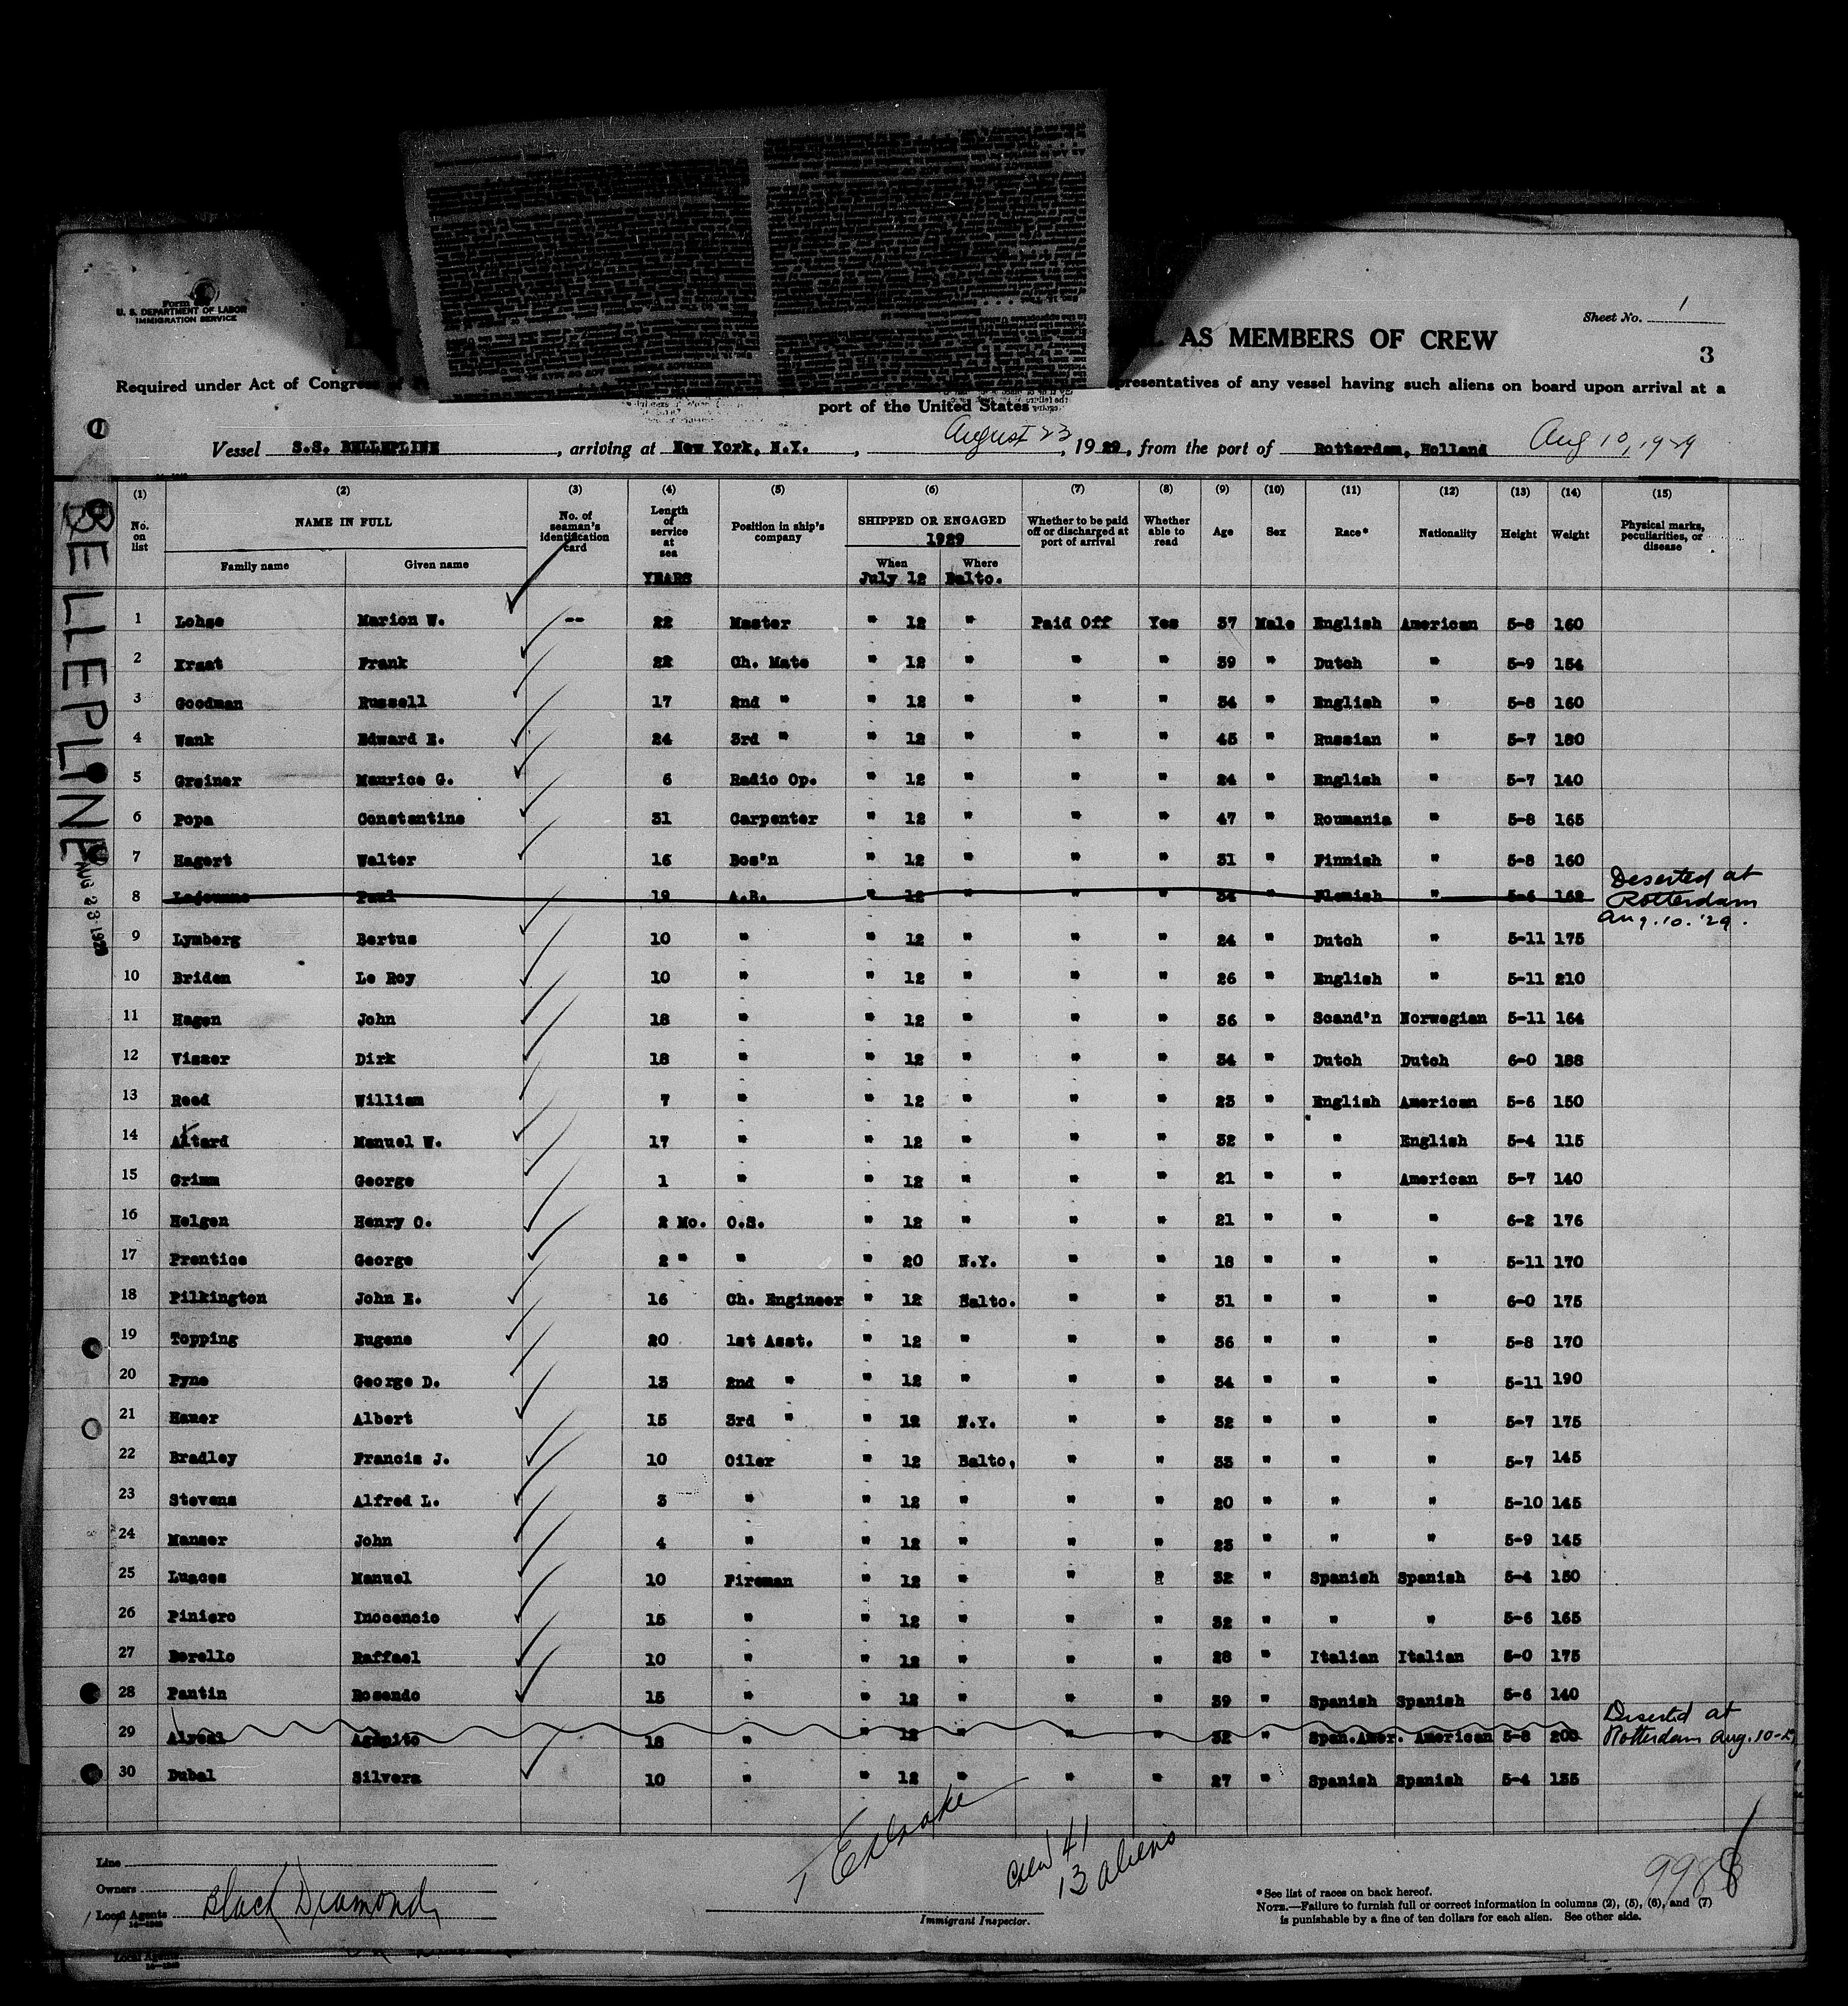 Form
U. S. DEPARTMENT OF LABOR
IMMIGRATION SERVICE
Sheet No. 1
AS MEMBERS OF CREW
3
Required under Act of Congress of presentatives of any vessel having such aliens on board upon arrival at a
port of the United States
Vessel S.S. BELLEPLINE, arriving at New York, N.Y., August 23, 1929, from the port of Rotterdam, Holland Aug 10, 1929
BELLEPLINE
AUG 23 1929
(1) (2) (3) (4) (5) (6) (7) (8) (9) (10) (11) (12) (13) (14) (15)
No. on list NAME IN FULL No. of seaman's identification card Length of service at sea Position in ship's company SHIPPED OR ENGAGED 1929 Whether to be paid off or discharged at port of arrival Whether able to read Age Sex Race* Nationality Height Weight Physical marks, peculiarities, or disease
Family name Given name YEARS When July 12 Where Balto.
1 Lohse Marion W. -- 22 Master " 12 " Paid Off Yes 37 Male English American 5-8 160
2 Kraat Frank 22 Ch. Mate " 12 " " " 39 " Dutch " 5-9 154
3 Goodman Russell 17 2nd " " 12 " " " 34 " English " 5-8 160
4 Wank Edward E. 24 3rd " " 12 " " " 45 " Russian " 5-7 180
5 Greiner Maurice G. 6 Radio Op. " 12 " " " 24 " English " 5-7 140
6 Popa Constantine 31 Carpenter " 12 " " " 47 " Roumania " 5-8 165
7 Hagert Walter 16 Bos'n " 12 " " " 31 " Finnish " 5-8 160
8 Paul 19 A.B. " 12 " " " 34 " Flemish " 5-6 162 Deserted at Rotterdam Aug. 10. '29.
9 Lymberg Bertus 10 " " 12 " " " 24 " Dutch " 5-11 175
10 Briden Le Roy 10 " " 12 " " " 26 " English " 5-11 210
11 Hagen John 18 " " 12 " " " 36 " Scand'n Norwegian 5-11 164
12 Visser Dirk 18 " " 12 " " " 34 " Dutch Dutch 6-0 188
13 Reed William 7 " " 12 " " " 23 " English American 5-6 150
14 Attard Manuel W. 17 " " 12 " " " 32 " " English 5-4 115
15 Grimm George 1 " " 12 " " " 21 " " American 5-7 140
16 Helgen Henry O. 2 Mo. O.S. " 12 " " " 21 " " " 6-2 176
17 Prentice George 2 " " " 20 N.Y. " " 18 " " " 5-11 170
18 Pilkington John E. 16 Ch. Engineer " 12 Balto. " " 31 " " " 6-0 175
19 Topping Eugene 20 1st Asst. " 12 " " " 36 " " " 5-8 170
20 Pyne George D. 13 2nd " " 12 " " " 34 " " " 5-11 190
21 Hauer Albert 15 3rd " " 12 N.Y. " " 32 " " " 5-7 175
22 Bradley Francis J. 10 Oiler " 12 Balto. " " 33 " " " 5-7 145
23 Stevens Alfred L. 3 " " 12 " " " 20 " " " 5-10 145
24 Manser John 4 " " 12 " " " 23 " " " 5-9 145
25 Luaces Manuel 10 Fireman " 12 " " " 32 " Spanish Spanish 5-4 150
26 Piniero Inocencio 15 " " 12 " " " 32 " " " 5-6 165
27 Borello Raffael 10 " " 12 " " " 28 " Italian Italian 5-0 175
28 Pantin Rosendo 15 " " 12 " " " 39 " Spanish Spanish 5-6 140
29 Agapito 18 " " 12 " " " 32 " Span.Amer. American 5-8 200 Deserted at Rotterdam Aug. 10
30 Dubal Silvera 10 " " 12 " " " 27 " Spanish Spanish 5-4 135
Line
Owners
Local Agents Black Diamond
Crew 41
13 aliens
Immigrant Inspector.
9988
*See list of races on back hereof.
NOTE.—Failure to furnish full or correct information in columns (2), (5), (6), and (7)
is punishable by a fine of ten dollars for each alien. See other side.
Local Agents